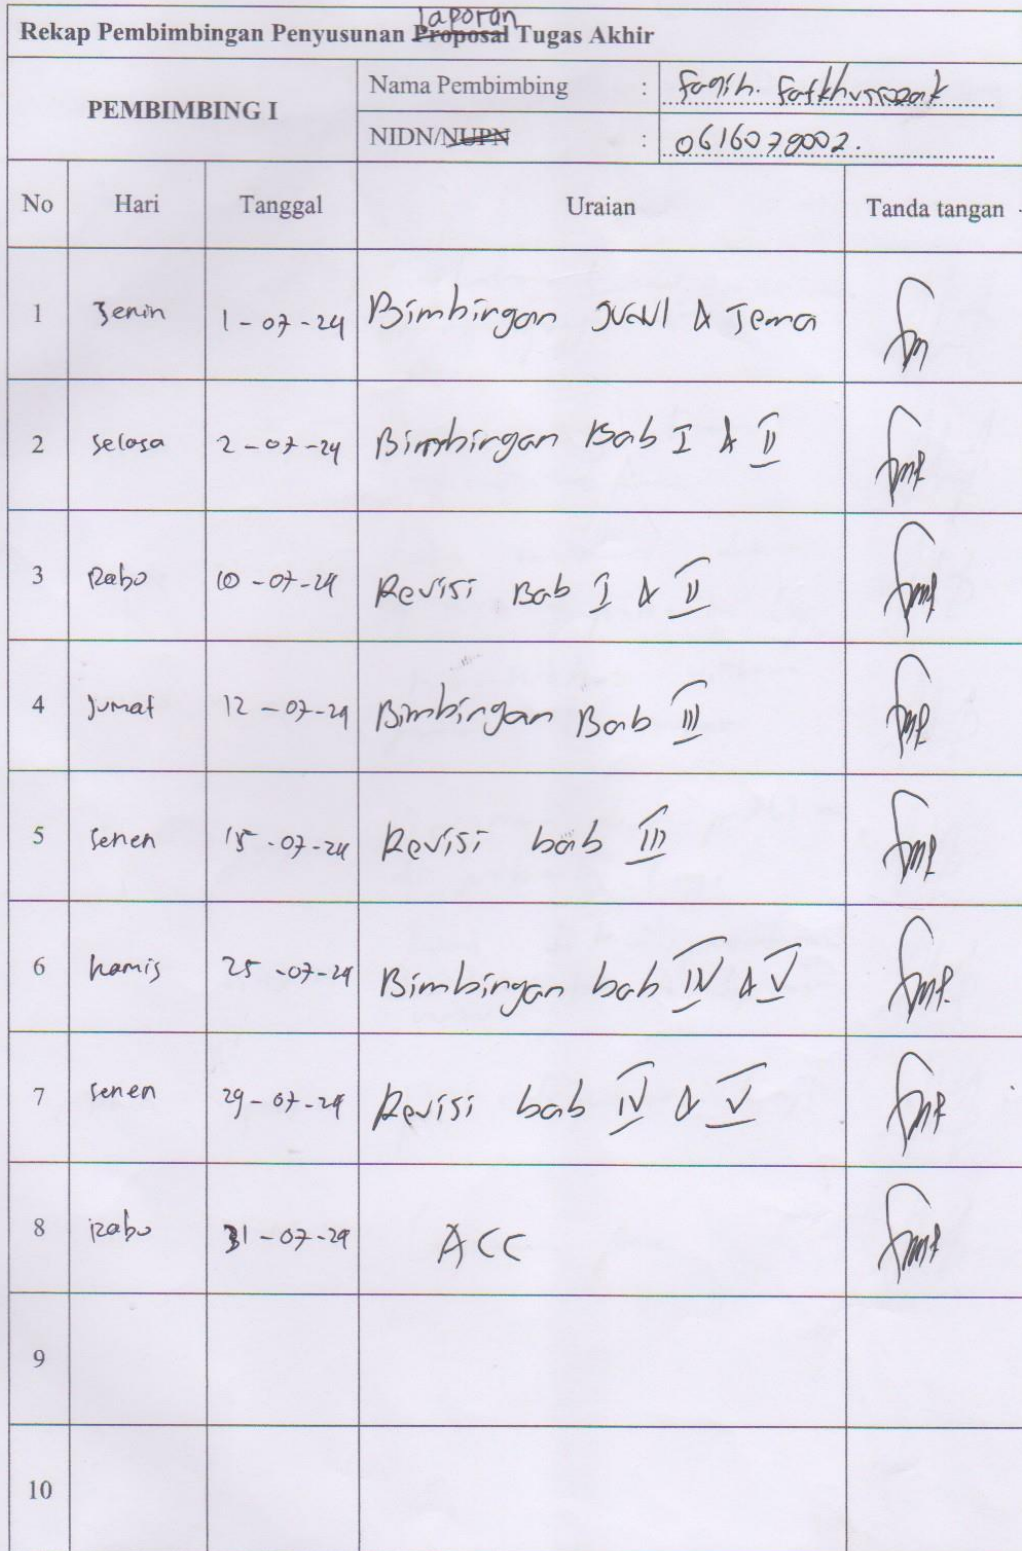 laporan
Rekap Pembimbingan Penyusunan Proposal Tugas Akhir
PEMBIMBING I
Nama Pembimbing : Faqih. Fatkhurrozak
NIDN/NUPN : 0616079002.
No Hari Tanggal Uraian Tanda tangan
1 Senin 1-07-24 Bimbingan Judul & Tema
2 Selasa 2-07-24 Bimbingan Bab I & II
3 Rabo 10-07-24 Revisi Bab I & II
4 Jumat 12-07-24 Bimbingan Bab III
5 Senen 15-07-24 Revisi bab III
6 Kamis 25-07-24 Bimbingan bab IV & V
7 Senen 29-07-24 Revisi bab IV & V
8 Rabo 31-07-24 ACC
9
10